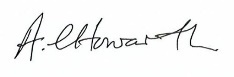 A. Howarth